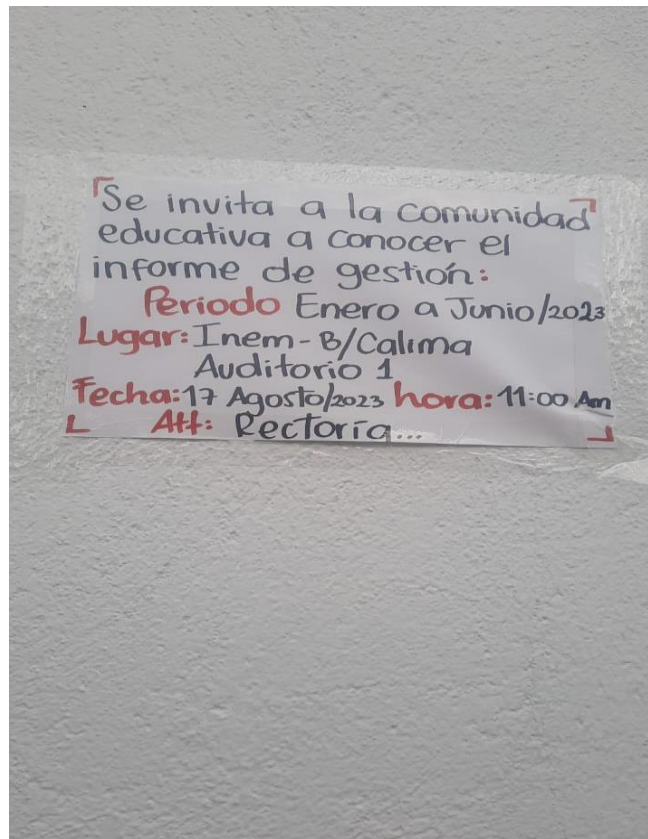 Se invita a la comunidad
educativa a conocer el
informe de gestión:
Periodo Enero a Junio/2023
Lugar: Inem - B/Calima
Auditorio 1
Fecha: 17 Agosto/2023 hora: 11:00 Am
Att: Rectoría...